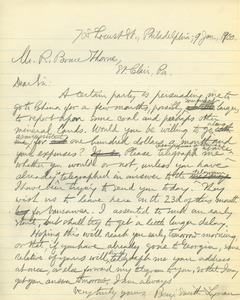 708 Locust St., Philadelphia, 9 Jan., 1910
Mr. R. Bruce Thorne,
St. Clair, Pa.
Dear Sir:
A certain party is persuading me to
go to China for a few months, possibly longer,
to report upon some coal and perhaps other
mineral lands. Would you be willing to go as
my assistant for one hundred dollars a month and
your expenses? Please telegraph me
whether you would or not, unless you have
already telegraphed in answer to the telegram
I have been trying to send you today. They
wish us to leave here on 23d of this month
for Vancouver. I should to
start, but shall try to get a little longer delay.
Hoping this will reach you early tomorrow morning,
or that, if you have already gone to
relative of yours will telegraph me your address
at once, or else forward my telegram to you, so that I may
get you an answer tomorrow, I am always
Very truly yours, Benj. Smith Lyman